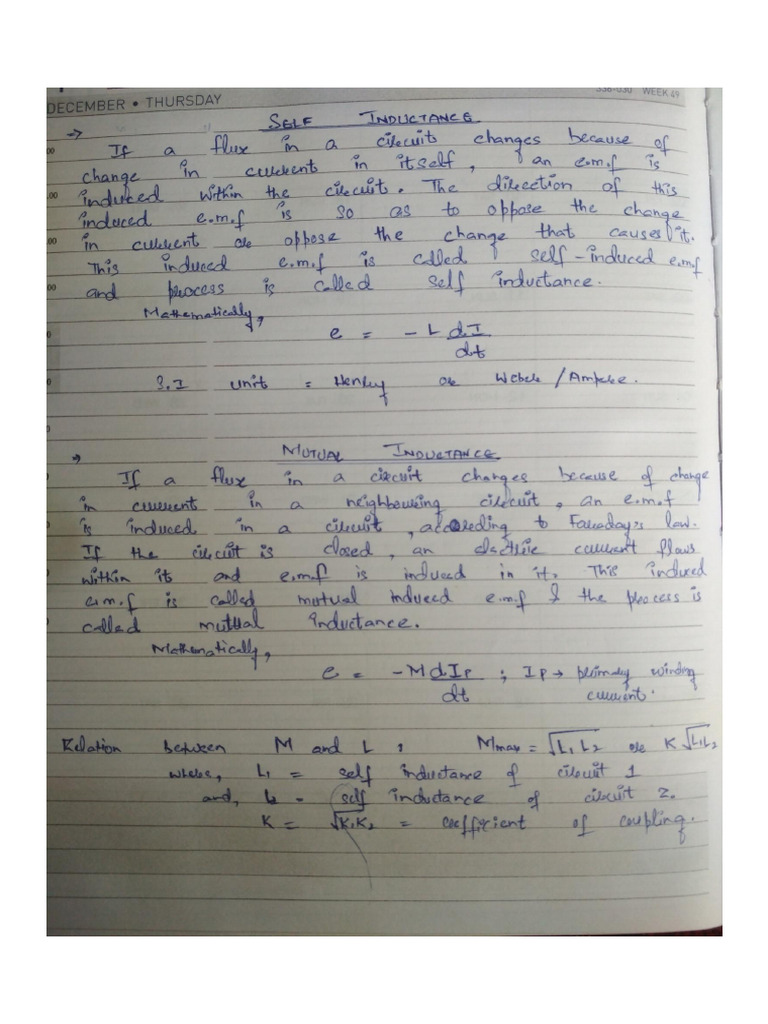 DECEMBER • THURSDAY
336-030 WEEK 49
→ SELF INDUCTANCE
If a flux in a circuit changes because of
change in current in itself, an e.m.f is
induced within the circuit. The direction of this
induced e.m.f is so as to oppose the change
in current or oppose the change that causes it.
This induced e.m.f is called self-induced e.m.f
and process is called self inductance.
Mathematically,
e = - L dI/dt
S.I unit = Henry or Weber / Ampere.
→ MUTUAL INDUCTANCE
If a flux in a circuit changes because of change
in current in a neighbouring circuit, an e.m.f
is induced in a circuit, according to Faraday's law.
If the circuit is closed, an electric current flows
within it and e.m.f is induced in it. This induced
e.m.f is called mutual induced e.m.f & the process is
called mutual inductance.
Mathematically,
e = -M dIp/dt ; Ip → primary winding
current.
Relation between M and L : Mmax = √L₁L₂ or K√L₁L₂
where, L₁ = self inductance of circuit 1
and, L₂ = self inductance of circuit 2.
K = √K₁K₂ = coefficient of coupling.